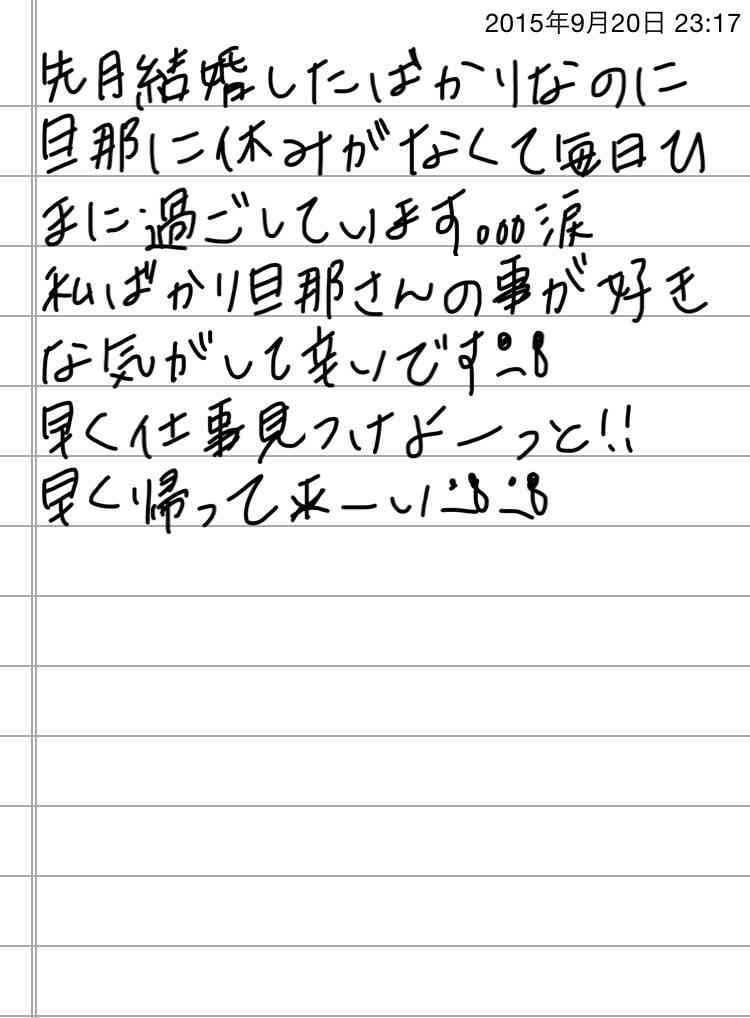 2015年9月20日 23:17
先月結婚したばかりなのに
旦那に休みがなくて毎日ひ
まに過ごしています。。。涙
私ばかり旦那さんの事が好き
な気がして辛いです
早く仕事見つけよーっと!!
早く帰って来ーい